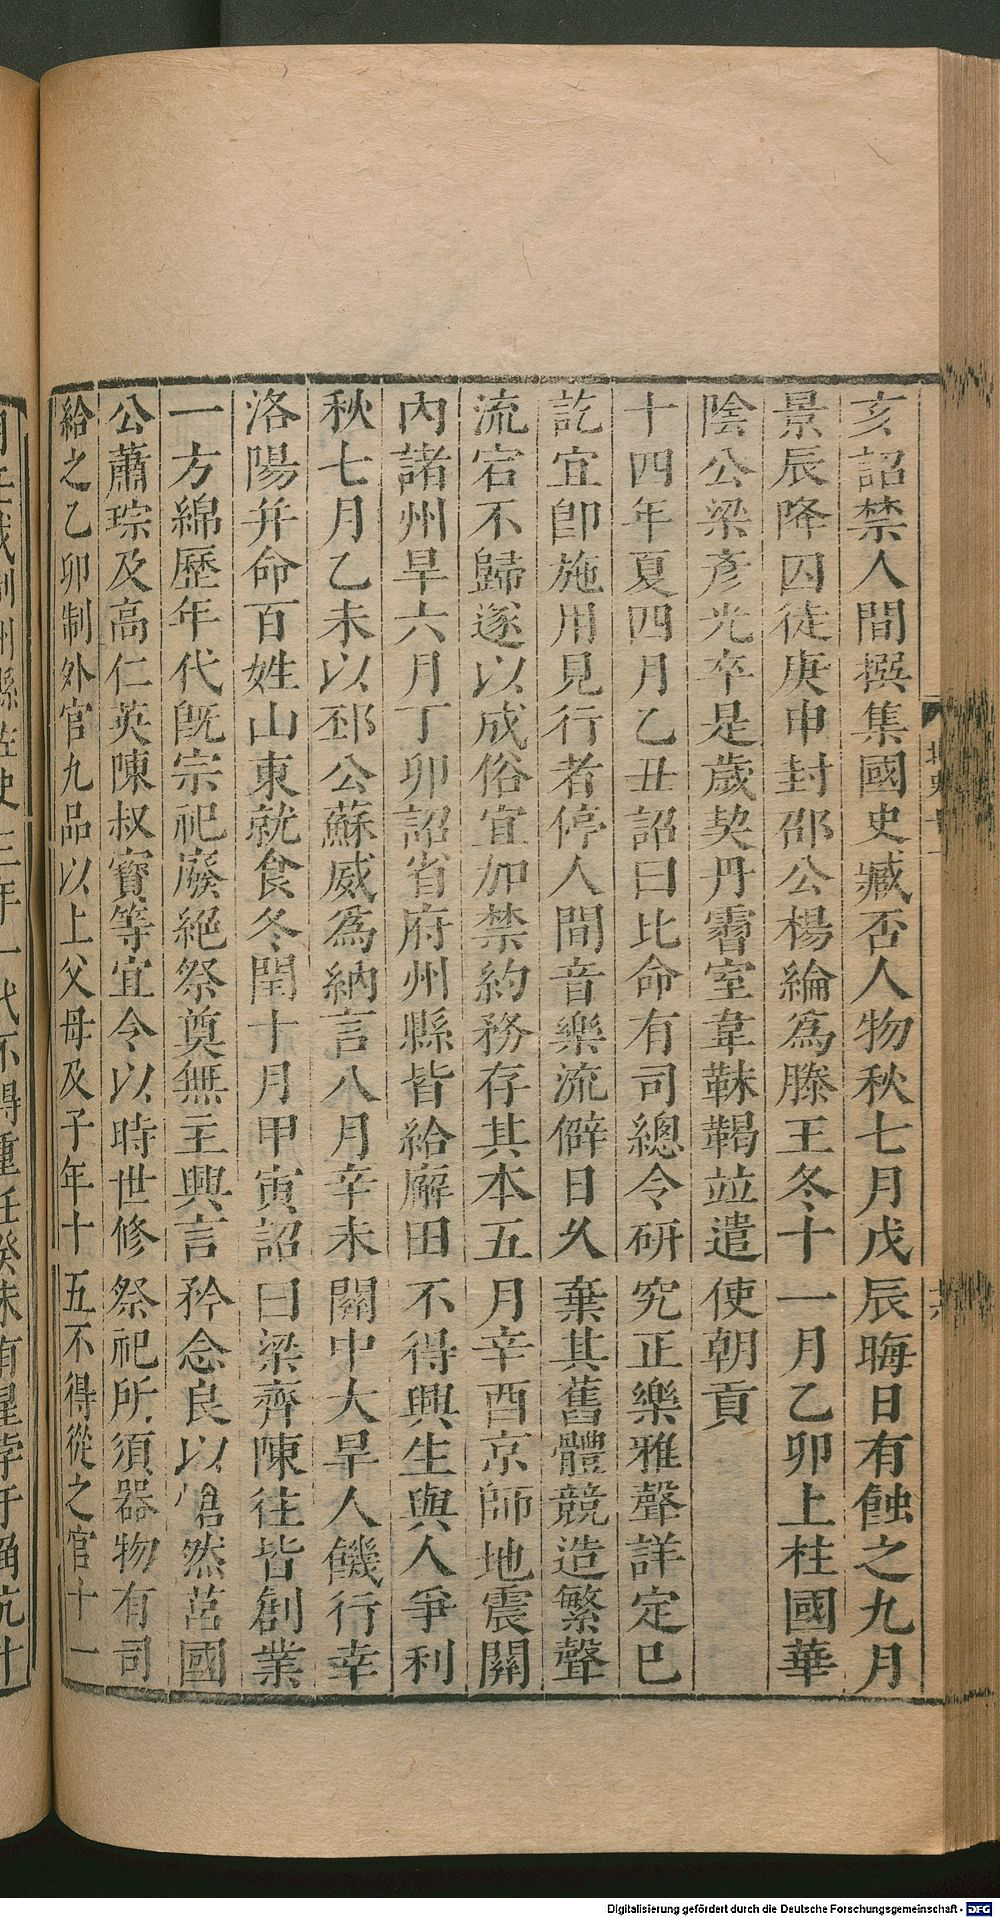 亥詔禁人間撰集國史臧否人物秋七月戊辰晦日有蝕之九月
景辰降囚徒庚申封邵公楊綸爲滕王冬十一月乙卯上柱國華
陰公梁彥光卒是歲契丹霫室韋靺鞨竝遣使朝貢
十四年夏四月乙丑詔曰比命有司總令研究正樂雅聲詳定已
訖宜卽施用見行者停人間音樂流僻日久棄其舊體競造繁聲
流宕不歸遂以成俗宜加禁約務存其本五月辛酉京師地震關
內諸州旱六月丁卯詔省府州縣皆給廨田不得興生與人爭利
秋七月乙未以邳公蘇威爲納言八月辛未關中大旱人饑行幸
洛陽并命百姓山東就食冬閏十月甲寅詔曰梁齊陳往皆創業
一方綿歷年代旣宗祀廢絕祭奠無主興言矜念良以愴然莒國
公蕭琮及高仁英陳叔寶等宜令以時世修祭祀所須器物有司
給之乙卯制外官九品以上父母及子年十五不得從之官十一
月壬戌制州縣佐史三年一代不得重任癸未有星孛于角亢十
北史十一
Digitalisierung gefördert durch die Deutsche Forschungsgemeinschaft - DFG